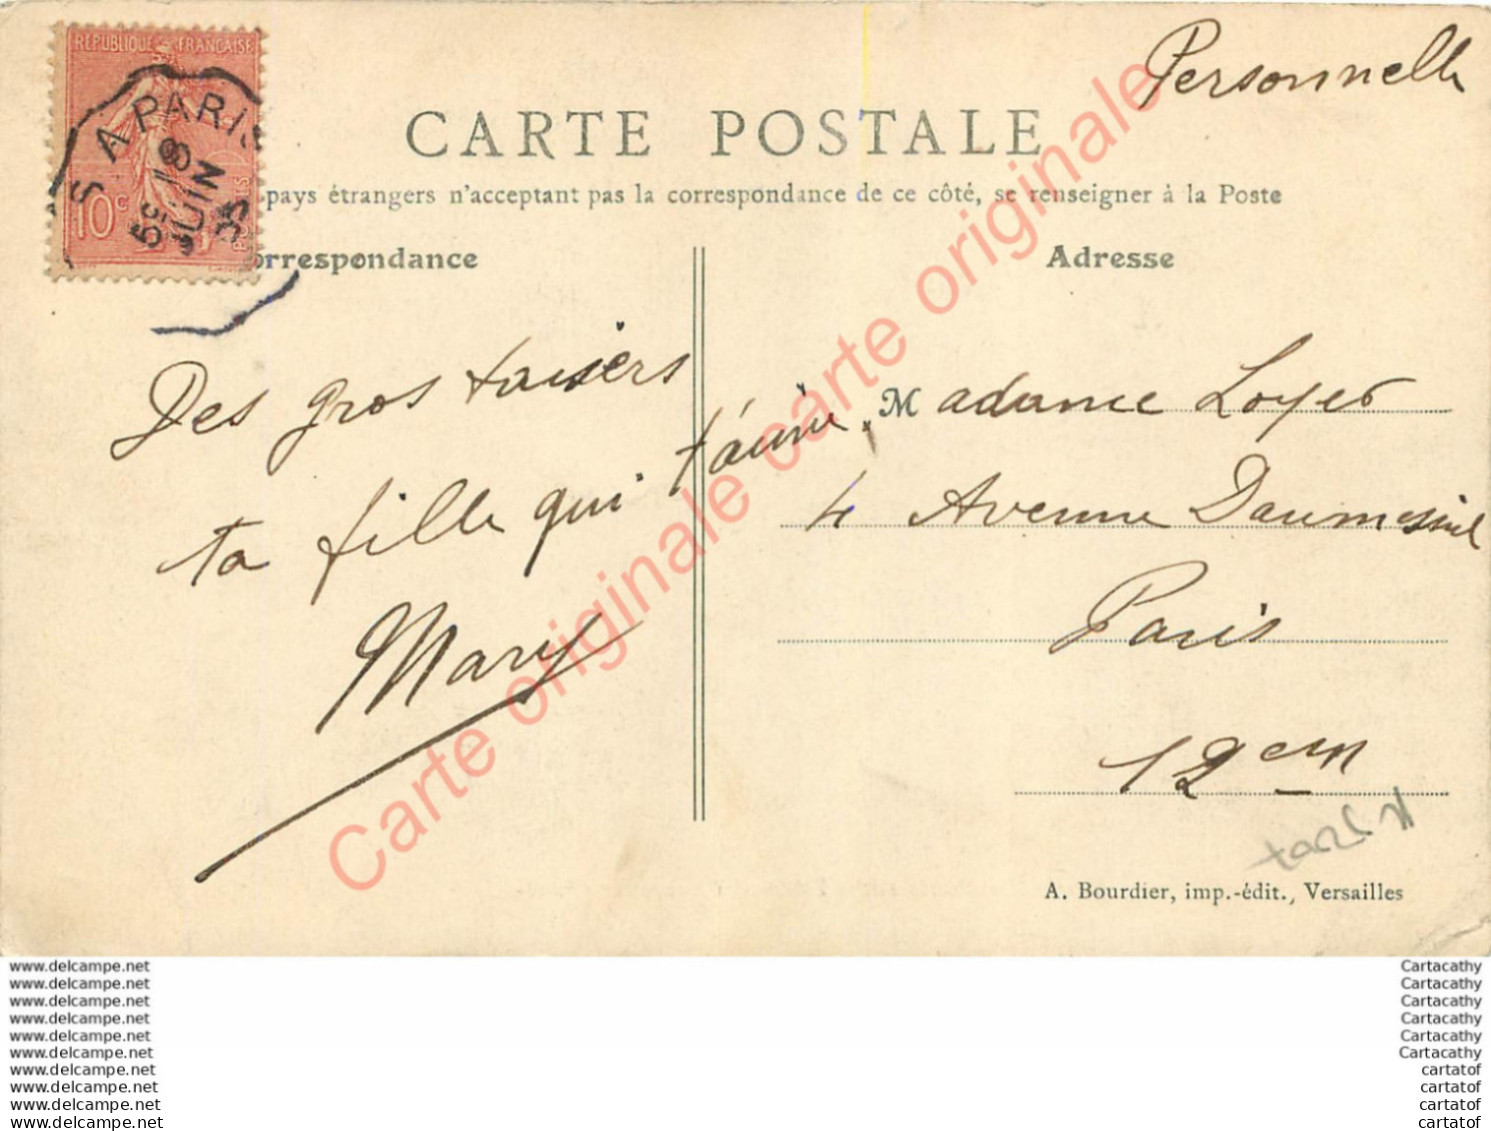 Personnelle
RÉPUBLIQUE FRANÇAISE
S A PARIS
5E
18
JUIN
05
10c
POSTES
CARTE POSTALE
pays étrangers n'acceptant pas la correspondance de ce côté, se renseigner à la Poste
orrespondance
Adresse
Des gros baisers
ta fille qui t'aime
Mary
Madame Loyer
4 Avenue Daumesnil
Paris
12em
A. Bourdier, imp.-édit., Versailles
Carte originale carte originale carte originale
www.delcampe.net
www.delcampe.net
www.delcampe.net
www.delcampe.net
www.delcampe.net
www.delcampe.net
www.delcampe.net
www.delcampe.net
www.delcampe.net
www.delcampe.net
Cartacathy
Cartacathy
Cartacathy
Cartacathy
Cartacathy
Cartacathy
cartatof
cartatof
cartatof
cartatof